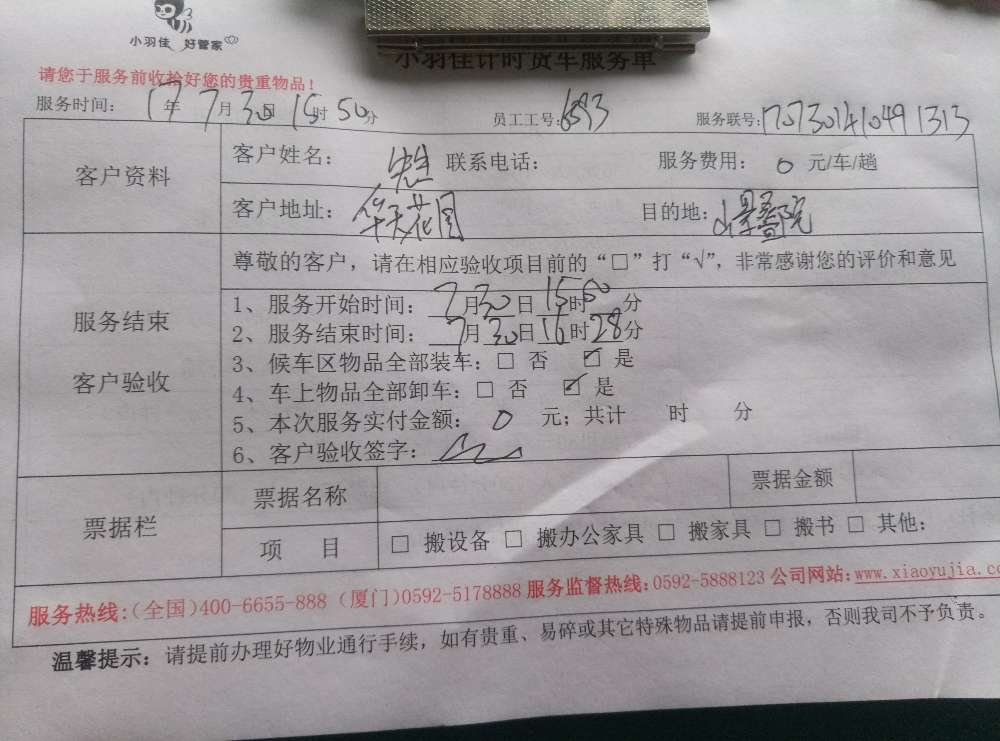 小羽佳 好管家
小羽佳计时货车服务单
请您于服务前收拾好您的贵重物品！
服务时间： 17年 7月30日 15时 50分 员工工号：6593 服务联号：
客户资料
客户姓名： 联系电话： 服务费用： 0 元/车/趟
客户地址： 华天花园 目的地：
服务结束
客户验收
尊敬的客户，请在相应验收项目前的“□”打“√”，非常感谢您的评价和意见
1、服务开始时间： 7月30日15时50分
2、服务结束时间： 7月30日16时28分
3、候车区物品全部装车：□ 否 ☑ 是
4、车上物品全部卸车：□ 否 ☑ 是
5、本次服务实付金额： 0 元；共计 时 分
6、客户验收签字：
票据栏
票据名称 票据金额
项 目 □ 搬设备 □ 搬办公家具 □ 搬家具 □ 搬书 □ 其他：
服务热线：（全国）400-6655-888（厦门）0592-5178888 服务监督热线：0592-5888123 公司网站：www.xiaoyujia.co
温馨提示：请提前办理好物业通行手续，如有贵重、易碎或其它特殊物品请提前申报，否则我司不予负责。